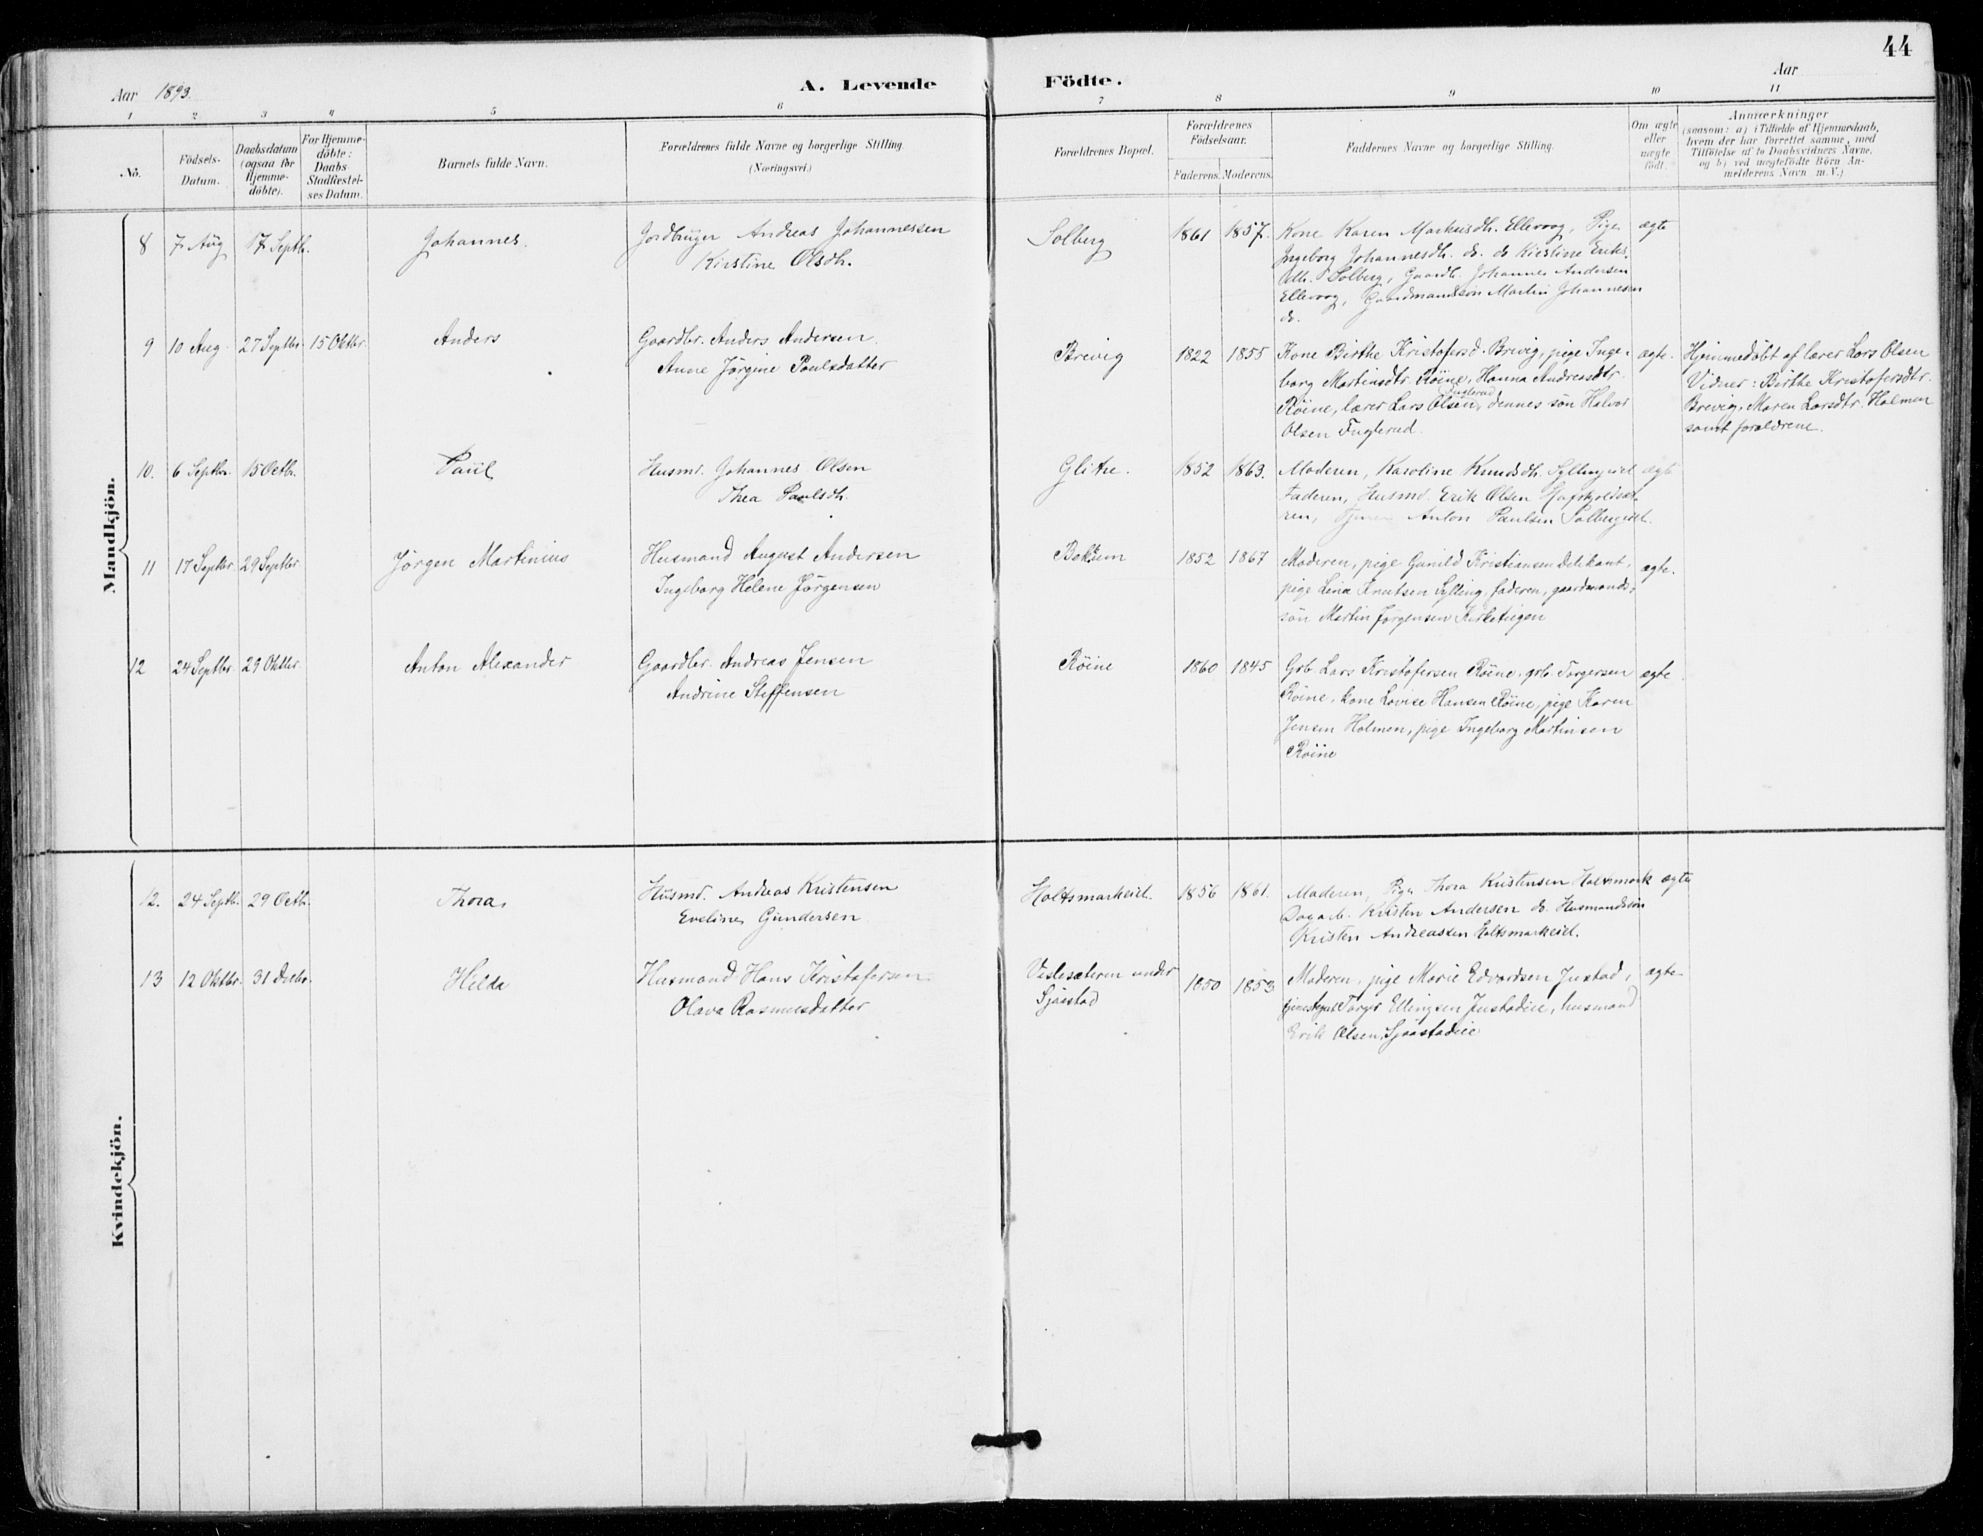 44
Aar 1893.
A. Levende Födte.
Aar
1 2 3 4 5 6 7 8 9 10 11
No.
Födsels-
Datum.
Daabsdatum
(ogsaa for
Hjemme-
döbte).
For Hjemme-
döbte:
Daabs
Stadfæstel-
ses Datum.
Barnets fulde Navn.
Forældrenes fulde Navne og borgerlige Stilling
(Næringsvei.)
Forældrenes Bopæl.
Forældrenes
Födselsaar.
Faderens. Moderens.
Faddernes Navne og borgerlige Stilling.
Om ægte
eller
uægte
födt.
Anmærkninger
(saasom: a) i Tilfælde af Hjemmedaab,
hvem der har forrettet samme, med
Tilföielse af to Daabsvidners Navne.
og b) ved uægtefödte Börn An-
melderens Navn m. V.)
Mandkjön.
8 7 Aug 17 Septb. Johannes.
Jordbruger Andreas Johannessen
Kirstine Olsdh.
Solberg 1861 1857.
Kone Karen Markusdh. Ellevog, Pige
Ingeborg Johannesdh. do. do Kirstine Eriks
dh. Solberg, Gaardb. Johannes Andersen
Ellevog, Gaardmandssön Martin Johannesen
do.
ægte
9 10 Aug. 27 Septbr. 15 Oktbr. Anders
Gaardbr. Anders Andersen.
Anne Jörgine Poulsdatter
Brevig 1822 1855
Kone Birthe Kristofersd. Brevig, pige Inge-
borg Martinsdtr. Röine, Hanna Andreasdtr.
Röine, lærer Lars Olsen Fuglerud, dennes sön Halvor
Olsen Fuglerud.
ægte.
Hjemmedöbt af lærer Lars Olsen
Vidner: Birthe Kristofersdtr.
Brevig, Maren Larsdtr. Holmen
samt forældrene.
10. 6 Septbr. 15 Octb. Paul
Husmd. Johannes Olsen
Thea Paulsdh.
Glitre. 1852 1863.
Moderen, Karoline Knudsdh. Syllingeiet
Faderen, Husmd. Erik Olsen
ren, Anton Paulsen Solbergeiet.
ægte
11 17 Septbr. 29 Septbr. Jörgen Martinius
Husmand August Andersen
Ingeborg Helene Jörgensen
1852 1867
Moderen, pige Gunild Kristiansen Delikant,
pige Lina Knutsen Sylling, faderen, gaardmands-
sön Martin Jörgensen Kirketeigen
ægte.
12 24 Septbr. 29 Oktbr. Anton Alexander
Gaardbr. Andreas Jensen
Andrine Steffensen
Röine 1860 1845
Grb. Lars Kristofersen Röine, grb. Torgersen
Röine, kone Lovise Hansen Röine, pige Karen
Jensen Holmen, pige Ingeborg Martinsen
Röine
ægte
Kvindekjön.
12. 24 Septb. 29 Octb. Thora.
Husmd. Andreas Kristensen
Eveline Gundersen
Holtsmarkeid. 1856 1861.
Moderen, Pige Thora Kristensen Holtsmark
Kristen Andersen do. Husmandssön
Kristen Andreassen Holtsmarkeid.
ægte
13 12 Oktbr. 31 Decbr. Hilda
Husmand Hans Kristofersen
Olava Rasmusdatter
Veslesæteren under
Sjåstad
1850 1853
Moderen, pige Marie Edvardsen Justad,
Torger Ellingsen Justadeie, husmand
Erik Olsen, Sjaastadeie
ægte